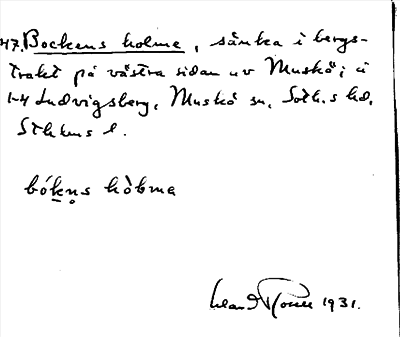 47. Bockens holme, sänka i bergs-
traket på västra sidan av Muskö; å
1-4 Ludvigsberg, Muskö sn, Soth.s hd,
Sthlms l.
bókn̥s hòlma
1931.